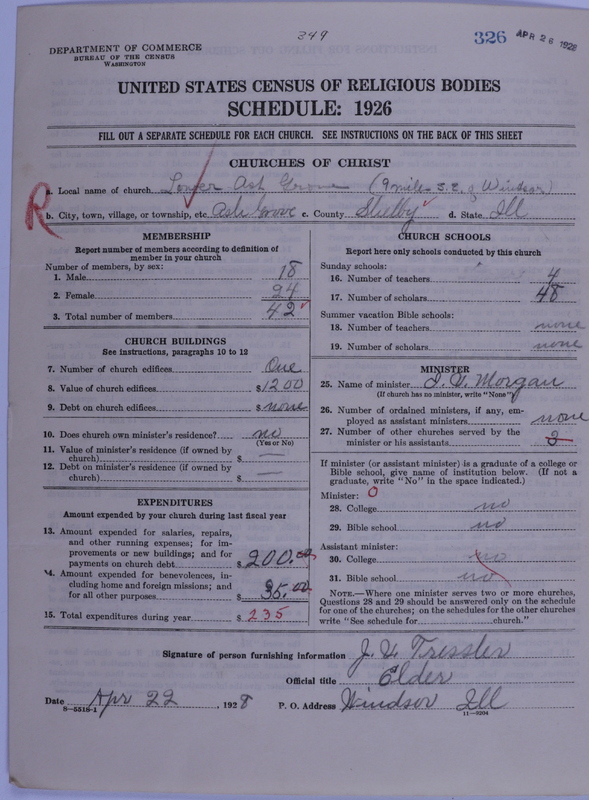 349
326 APR 26 1928
DEPARTMENT OF COMMERCE
BUREAU OF THE CENSUS
WASHINGTON
UNITED STATES CENSUS OF RELIGIOUS BODIES
SCHEDULE: 1926
FILL OUT A SEPARATE SCHEDULE FOR EACH CHURCH. SEE INSTRUCTIONS ON THE BACK OF THIS SHEET
CHURCHES OF CHRIST
R
a. Local name of church Lower Ash Grove (9 miles S.E. of Windsor)
b. City, town, village, or township, etc. Ash Grove c. County Shelby d. State Ill
MEMBERSHIP
Report number of members according to definition of
member in your church
Number of members, by sex:
1. Male 18
2. Female 24
3. Total number of members 42
CHURCH BUILDINGS
See instructions, paragraphs 10 to 12
7. Number of church edifices One
8. Value of church edifices $1200
9. Debt on church edifices $ none
10. Does church own minister's residence? no
(Yes or No)
11. Value of minister's residence (if owned by
church) $ —
12. Debt on minister's residence (if owned by
church) $ —
EXPENDITURES
Amount expended by your church during last fiscal year
13. Amount expended for salaries, repairs,
and other running expenses; for im-
provements or new buildings; and for
payments on church debt $ 200.00
14. Amount expended for benevolences, in-
cluding home and foreign missions; and
for all other purposes $ 35.00
15. Total expenditures during year $ 235
CHURCH SCHOOLS
Report here only schools conducted by this church
Sunday schools:
16. Number of teachers 4
17. Number of scholars 48
Summer vacation Bible schools:
18. Number of teachers none
19. Number of scholars none
MINISTER
25. Name of minister Morgan
(If church has no minister, write "None")
26. Number of ordained ministers, if any, em-
ployed as assistant ministers none
27. Number of other churches served by the
minister or his assistants 3
If minister (or assistant minister) is a graduate of a college or
Bible school, give name of institution below. (If not a
graduate, write "No" in the space indicated.)
Minister: 0
28. College no
29. Bible school no
Assistant minister:
30. College no
31. Bible school no
NOTE.—Where one minister serves two or more churches,
Questions 28 and 29 should be answered only on the schedule
for one of the churches; on the schedules for the other churches
write "See schedule for church."
Signature of person furnishing information J. V. Tressler
Official title Elder
Date Apr 22, 1928 P. O. Address Windsor Ill
8—5518-1 11—9204